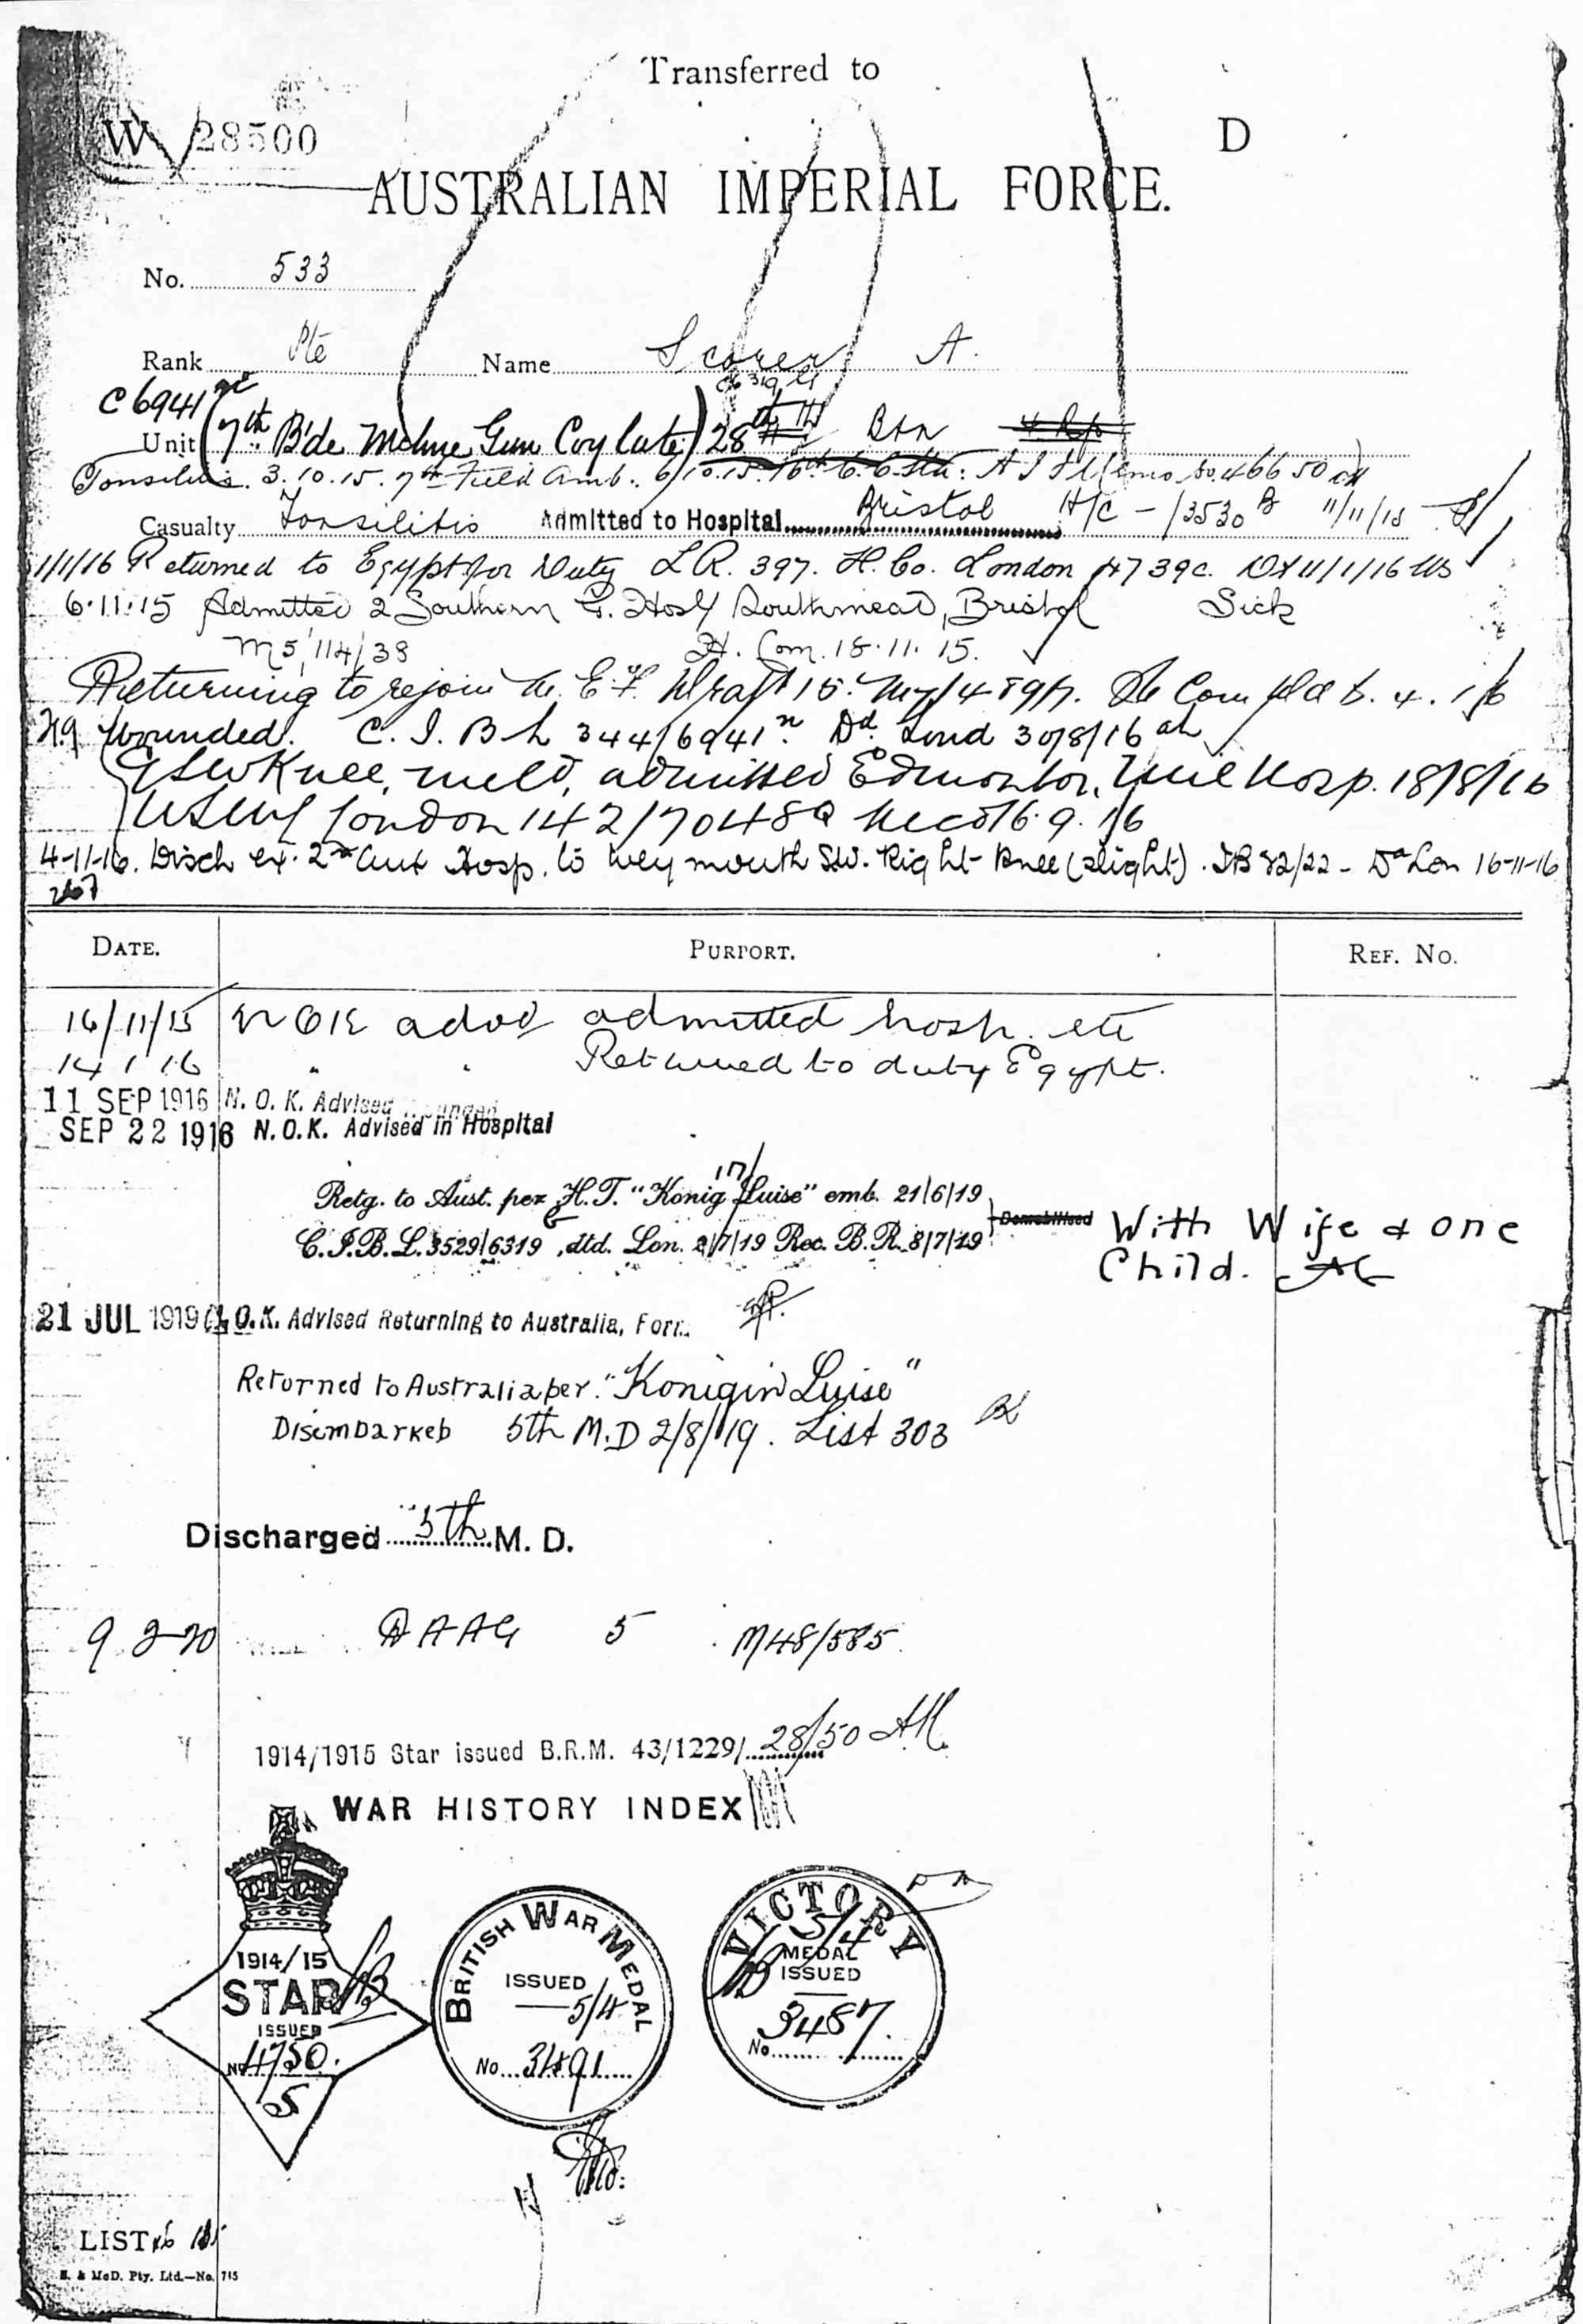 Transferred to
W 28500
D
AUSTRALIAN IMPERIAL FORCE.
No. 533
Rank Pte Name Scorer A.
C 6941
Unit (7th B'de Mchne Gun Coy late) 28th Btn
Tonsilitis. 3.10.15. 7th Field Amb. 6/10.15. 16th C.C. Stn: 46650
Casualty Tonsilitis Admitted to Hospital Bristol H/C - 13530 B 11/11/15
1/1/16 Returned to Egypt for Duty L.R. 397. H. Co. London 4739c. Dd 11/1/16
6.11.15 Admitted 2 Southern G. Hosp Southmead, Bristol Sick
M5/114/38 H. Com. 18.11.15.
Returning to rejoin M.E.F. Draft 15. 4.1.16
Wounded. C.I.B L 344/6941 Dd. Lond 30/8/16
G S W Knee, mild, admitted Edmonton Mil Hosp. 18/8/16
London 142/70484 Recd 6.9.16
4-11-16. Disch ex. 2nd Aux Hosp. to Weymouth SW. Right Knee (slight). IB 82/22 - Dd Lon 16-11-16
2607
DATE. PURPORT. REF. No.
16/11/15 NOK advd admitted hosp. etc
14 1 16 " " Returned to duty Egypt.
11 SEP 1916 N. O. K. Advised
SEP 22 1916 N.O.K. Advised in Hospital
17/
Retg. to Aust. per H.T. "Konig Luise" emb. 21/6/19
C.I.B.L. 3529/6319, dtd. Lon. 2/7/19 Rec. B.R. 8/7/19 Demobilised With Wife & one
Child.
21 JUL 1919 N.O.K. Advised Returning to Australia, Form.
Returned to Australia per "Konigin Luise"
Disembarked 5th M.D 2/8/19. List 303
Discharged 5th M. D.
9 2 20 DAAG 5 M48/585
1914/1915 Star issued B.R.M. 43/1229/ 28/50
WAR HISTORY INDEX
1914/15
STAR
ISSUED
No 4750.
S
BRITISH WAR MEDAL
ISSUED
5/4
No 3491
VICTORY
5/4
MEDAL
ISSUED
3487.
No
LIST
H. & McD. Pty. Ltd.—No. 715